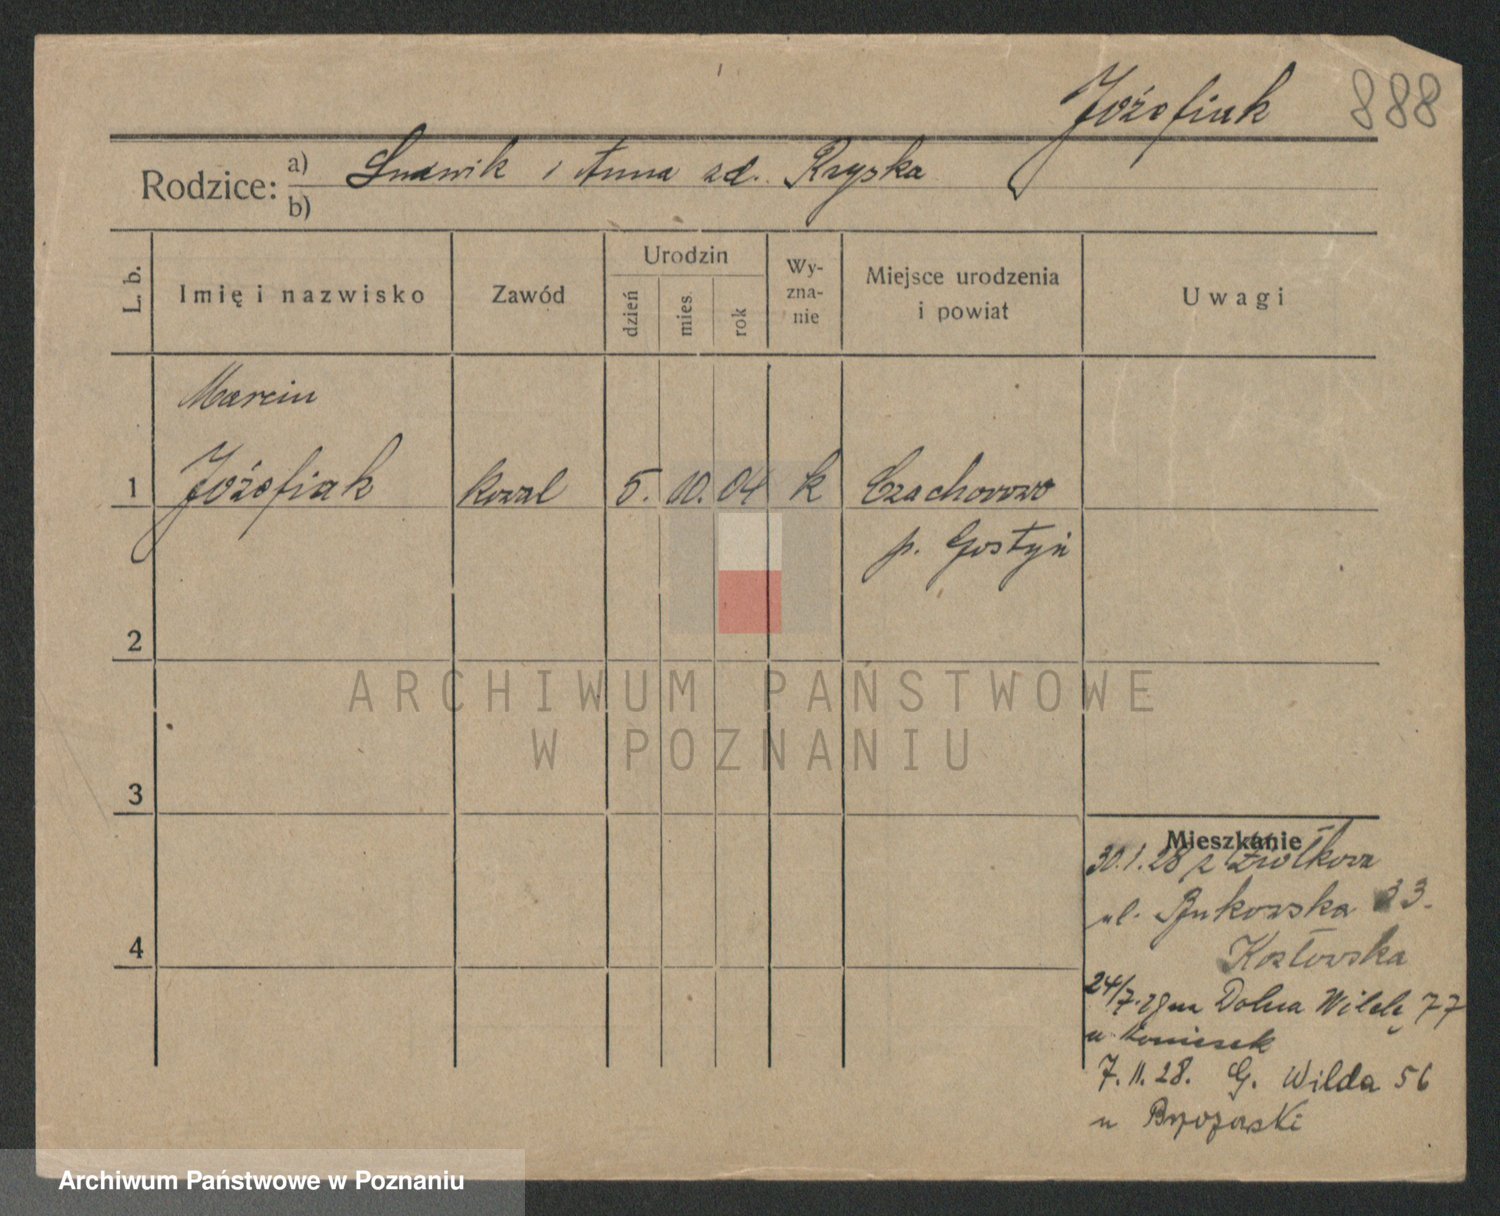 Józefiak 888
Rodzice: a) Ludwik i Anna zd. Ryska
b)
L. b. Imię i nazwisko Zawód Urodzin dzień mies. rok Wyzna-nie Miejsce urodzenia i powiat Uwagi
Marcin
1 Józefiak kowal 5. 10. 04 k Czachorowo
p. Gostyń
2
ARCHIWUM PAŃSTWOWE
W POZNANIU
3
Mieszkanie
30.1.28 z
ul. Bukowska 33.
Kozłowska
4
24/7.28 na Dolna Wildę 77
u
7.11.28. G. Wilda 56
u
Archiwum Państwowe w Poznaniu